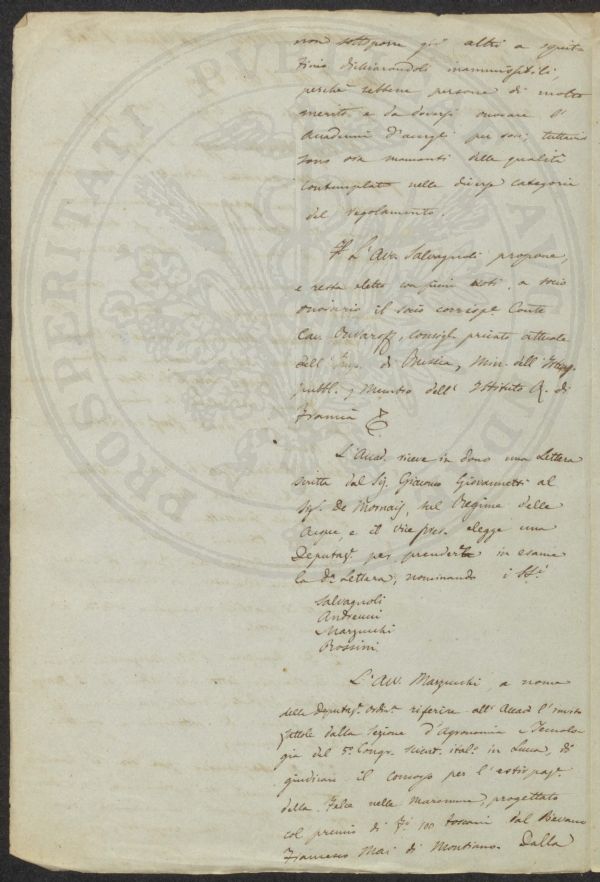 non sottoporre già altri a squitta
tinio dichiarandoli inammissibili,
perchè sebbene persone di molto
merito, e da doversi onorare l'
Accademia d'avergli per soci, tuttavia
sono ora mancanti delle qualità
contemplate nelle diverse categorie
del regolamento.
L'Avv. Salvagnoli propone,
e resta eletto con pieni voti, a socio
onorario il socio corrisp.e Conte
Cav. Ouvaroff, Consigl. privato attuale
dell'Imp. di Russia, Min. dell'Istruz.
pubbl., Membro dell'Istituto R. di
Francia
L'Accad. riceve in dono una Lettera
scritta dal Sig. Giacomo Giovannetti al
Sig. De Mornay, sul Regime delle
Acque, e il vice pres. elegge una
Deputaz. per prenderla in esame
la d.a Lettera, nominando i SS.ri
Salvagnoli
Andreucci
Marzucchi
Rossini
L'Avv. Marzucchi, a nome
della Deputaz. ordin.a riferisce all'Accad. l'invito
fattole dalla Sezione d'Agronomia e Tecnolo
gia del 5.o Congr. scient. ital.o in Lucca, di
giudicare il concorso per l'estirpaz.e
della Felce nelle maremme, progettato
col premio di F.i 100 toscani dal
Francesco Mai di Montiano. Dalla
PROSPERITATI PVB